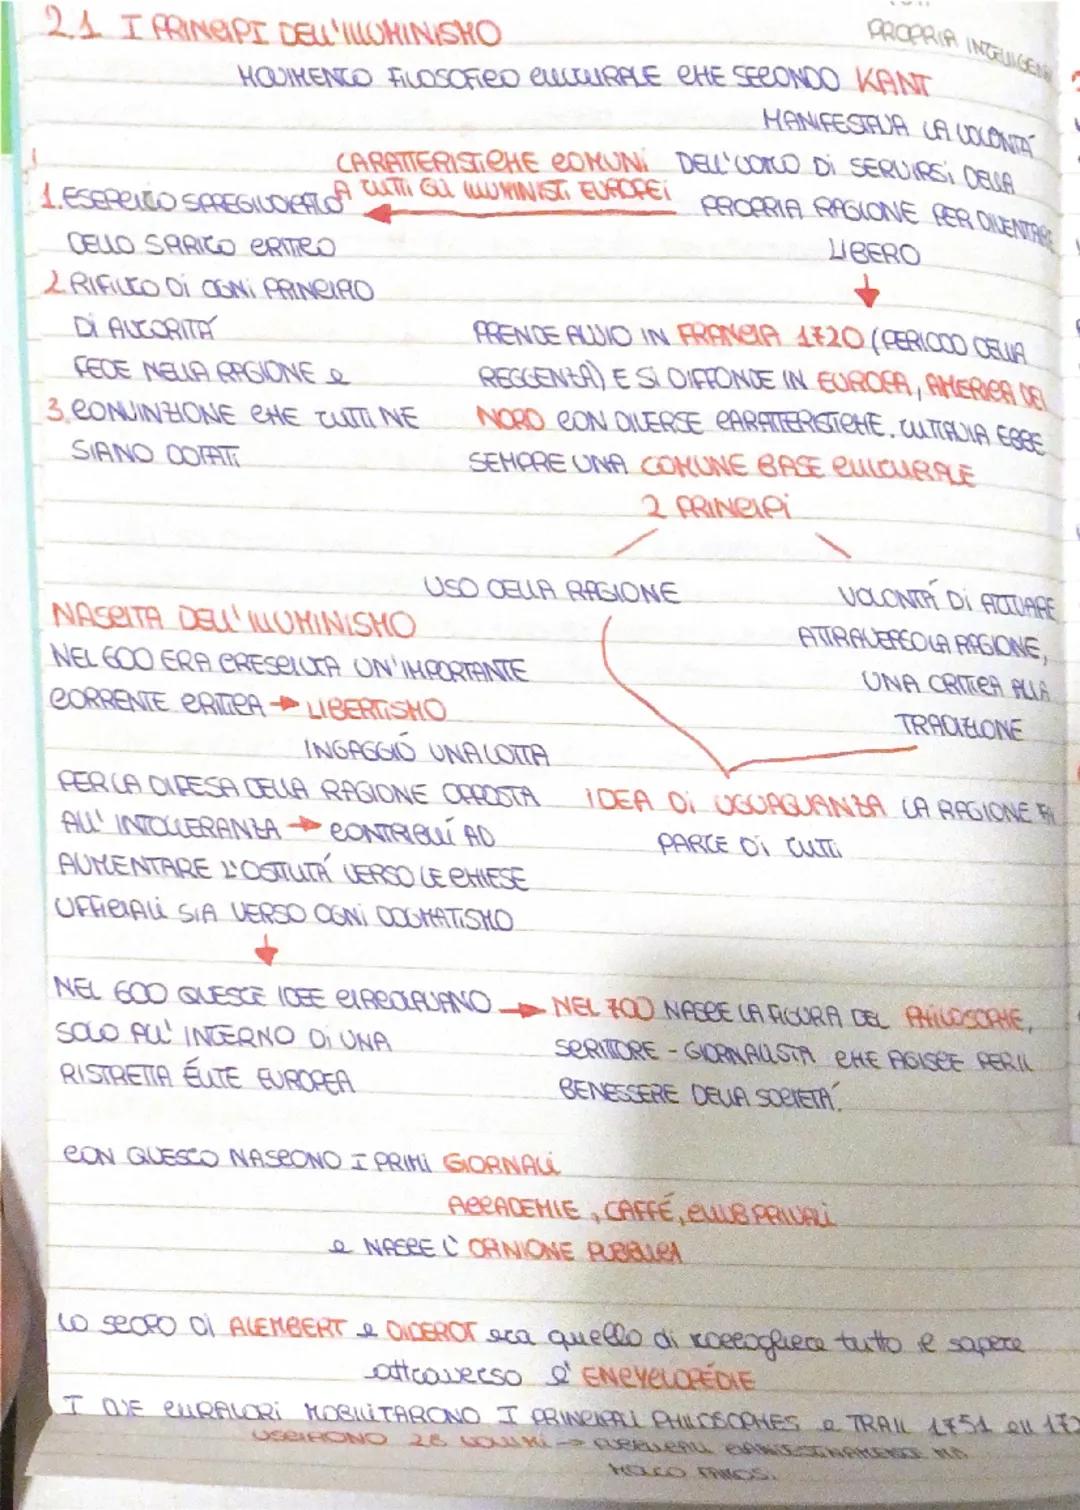 2.1 I PRINCIPI DELL'ILLUMINISMO
PROPRIA
MOVIMENTO FILOSOFICO CULTURALE CHE SECONDO KANT
MANIFESTAVA LA VOLONTÀ
DELL'UOMO DI SERVIRSI DELLA
PROPRIA RAGIONE PER DIVENTARE
LIBERO
CARATTERISTICHE COMUNI
A TUTTI GLI ILLUMINISTI EUROPEI
1. ESERCITO SPREGIUDICATO
DELLO SPIRITO CRITICO
2. RIFIUTO DI OGNI PRINCIPIO
DI AUTORITÀ
FEDE NELLA RAGIONE e
3. CONVINZIONE CHE TUTTI NE
SIANO DOTATI
PRENDE AVVIO IN FRANCIA 1720 (PERIODO DELLA
REGGENZA) E SI DIFFONDE IN EUROPA, AMERICA DEL
NORD CON DIVERSE CARATTERISTICHE. TUTTAVIA EBBE
SEMPRE UNA COMUNE BASE CULTURALE
2 PRINCIPI
USO DELLA RAGIONE
VOLONTÀ DI ATTUARE
ATTRAVERSO LA RAGIONE,
UNA CRITICA ALLA
TRADIZIONE
IDEA DI UGUAGUANZA LA RAGIONE FA
PARTE DI TUTTI
NASCITA DELL'ILLUMINISMO
NEL 600 ERA CRESCIUTA UN'IMPORTANTE
CORRENTE CRITICA → LIBERTISMO
INGAGGIÒ UNA LOTTA
PER LA DIFESA DELLA RAGIONE OPPOSTA
ALL'INTOLLERANZA → CONTRIBUÌ AD
AUMENTARE L'OSTILITÀ VERSO LE CHIESE
UFFICIALI SIA VERSO OGNI DOGMATISMO
NEL 600 QUESTE IDEE CIRCOLAVANO
SOLO ALL'INTERNO DI UNA
RISTRETTA ÉLITE EUROPEA
→ NEL 700 NASCE LA FIGURA DEL PHILOSOPHE,
SCRITTORE - GIORNALISTA CHE AGISCE PER IL
BENESSERE DELLA SOCIETÀ.
CON QUESTO NASCONO I PRIMI GIORNALI
ACCADEMIE, CAFFÉ, CLUB PRIVATI
e NASCE L'OPINIONE PUBBLICA
LO SCOPO DI ALEMBERT e DIDEROT era quello di raccogliere tutto e sapere
attraverso l'ENCYCLOPÉDIE
I DUE CURATORI MOBILITARONO I PRINCIPALI PHILOSOPHES e TRA IL 1751 e il
USCIRONO 28 VOLUMI → PUBBLICATI CLANDESTINAMENTE MA
MOLTO FAMOSI.